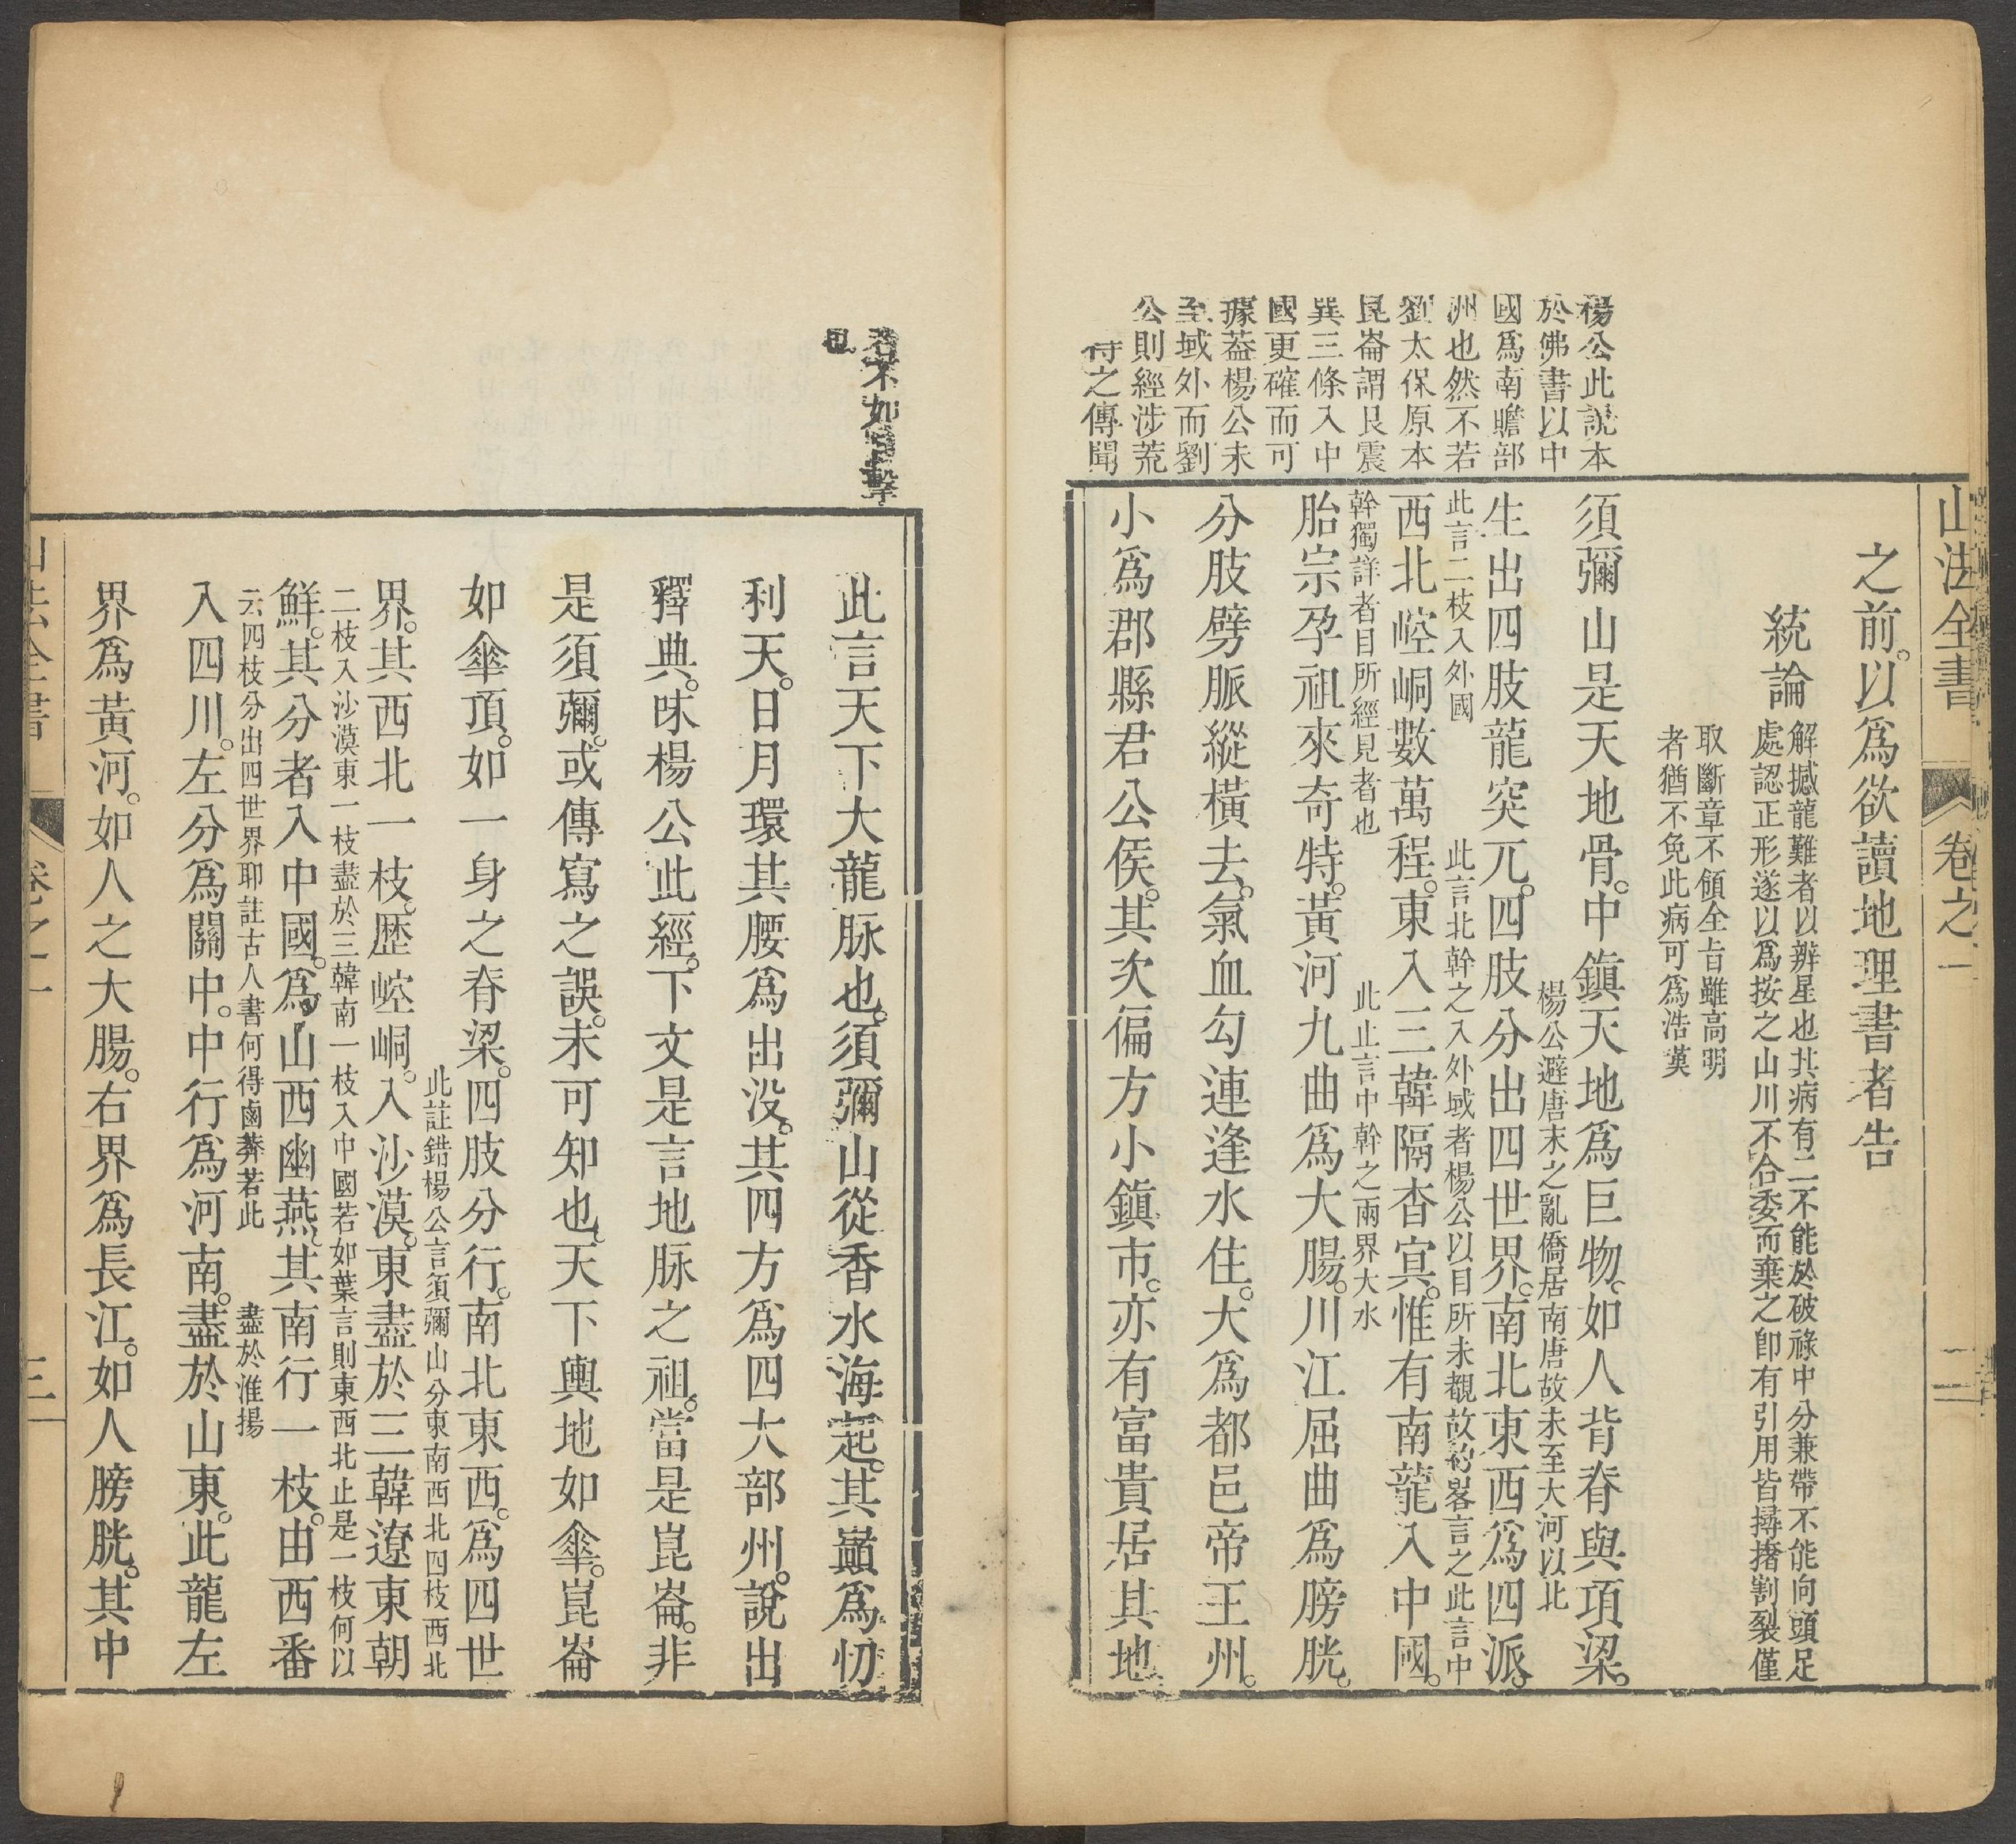 山法全書
卷之一
之前。以爲欲讀地理書者告
統論
解撼龍難者以辨星也其病有二不能於破祿中分兼帶不能向頭足
處認正形遂以爲按之山川不合委而棄之卽有引用皆撏撦割裂僅
取斷章不領全㫖雖高明
者猶不免此病可爲浩嘆
楊公此説本
於佛書以中
國爲南贍部
洲也然不若
劉太保原本
崑崙謂艮震
巽三條入中
國更確而可
據葢楊公未
至域外而劉
公則經涉荒
待之傳聞
須彌山是天地骨。中鎮天地爲巨物。如人背脊與項梁。
生出四肢龍突兀。四肢分出四世界。南北東西爲四派。
楊公避唐末之亂僑居南唐故未至大河以北
此言二枝入外國
此言北幹之入外域者楊公以目所未覩故約畧言之此言中
西北崆峒數萬程。東入三韓隔杳冥。惟有南龍入中國。
幹獨詳者目所經見者也
此止言中幹之兩界大水
胎宗孕祖來奇特。黃河九曲爲大腸。川江屈曲爲膀胱。
分肢劈脈縱橫去。氣血勾連逢水住。大爲都邑帝王州。
小爲郡縣君公侯。其次偏方小鎮市。亦有富貴居其地
者不如目擊
也
此言天下大龍脉也。須彌山從香水海起。其巔爲忉
利天。日月環其腰爲出没。其四方爲四大部州。說出
釋典。味楊公此經。下文是言地脉之祖。當是崑崙。非
是須彌。或傳寫之誤。未可知也。天下輿地如傘。崑崙
如傘頂。如一身之脊梁。四肢分行。南北東西。爲四世
此註錯楊公言須彌山分東南西北四枝西北
界。其西北一枝。歷崆峒。入沙漠。東盡於三韓遼東朝
二枝入沙漠東一枝盡於三韓南一枝入中國若如葉言則東西北止是一枝何以
鮮。其分者入中國。爲山西幽燕。其南行一枝。由西番
云四枝分出四世界耶註古人書何得鹵莽若此
盡於淮揚
入四川。左分爲關中。中行爲河南。盡於山東。此龍左
界爲黃河。如人之大腸。右界爲長江。如人膀胱。其中
山法全書
卷之一
三